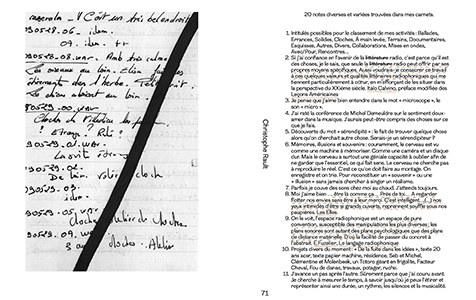 idem
090528.07. idem
090528.08. war
Les oiseaux au loin.
090529.00.war
Cloche de
? Etrange ? Riti ?
090529.01.war
090529.02.
De loin cloche
090529.03.
idem.
090529.08.
Atelier de cloches
090529.09.war
cloches - Atelier
Christophe Rault
20 notes diverses et variées trouvées dans mes carnets.
1. Intitulés possibles pour le classement de mes activités : Ballades,
Errances, Solides, Cloches, À main levée, Terrains, Documentaires,
Esquisses, Autres, Divers, Collaborations, Mises en ondes,
Avec/Pour, Rencontres...
2. Si j'ai confiance en l'avenir de la littérature radio, c'est parce qu'il est
des choses, je le sais, que seule la littérature radio peut offrir par ses
propres moyens spécifiques. Aussi voudrais-je consacrer ce travail
à ces quelques valeurs et qualités littéraires radiophoniques qui me
tiennent particulièrement à cœur, en m'efforçant de les situer dans
la perspective du XXIème siècle. Italo Calvino, préface modifiée des
Leçons Américaines
3. Je pense que j'aime bien entendre dans le mot « microscope », le
son « micro ».
4. J'ai raté la conférence de Michel Demeuldre sur le sentiment doux-
amer dans la musique. J'aurais peut-être compris des choses sur ce
que je fais.
5. Découverte du mot « sérendipité » : le fait de trouver quelque chose
alors qu'on cherchait autre chose. Serais-je un sérendipiteur ?
6. Mémoires, illusions et souvenirs : couramment, le cerveau est vu
comme une machine à mémoriser. Comme une caméra et un disque
dur. Mais le cerveau a surtout une géniale capacité à oublier afin de
ne garder que l'essentiel, ce qui fait sens. Le cerveau ne cherche pas
à reproduire le réel. C'est ce qu'on doit faire au montage. On
enregistre et on trie. Pour reconstituer un « souvenir » ou une
« illusion » sans jamais chercher à singer un réalisme.
7. Parfois je couve des sons chez moi au chaud. J'attends toujours.
8. Moi j'aime bien ... être là comme ça... Près de toi... À regarder
flotter nos envies sans être à leur merci. C'est intelligent...(...) nos
yeux mitoyens d'être si grands ouverts, aspirent le souffle sous nos
paupières. Les Elles.
9. On le voit, l'espace radiophonique est un espace de pure
convention, susceptible des manipulations les plus diverses ; les
plans sonores sont autant des plans psychologiques que des plans
de distance matérielle. D'où la facilité de passer du concret à
l'abstrait. E.Fuzelier, Le langage radiophonique
10. Projets divers du moment : « De la fuite dans les idées », texte 20
ans acsr, texte papier machine, résidence, Seb et Michel,
Clémentine et Molenbeek, un Totoro géant rigolote, Facteur
Cheval, Fou de dans, travaux, potager, ruche.
11. J'avance un pas après l'autre. Sûrement parce que j'ai couru avant.
Je cherche à mesurer le temps, à savoir jusqu'où je peux l'étirer et
représenter ainsi une durée, un rythme, les silences et la musicalité.
71